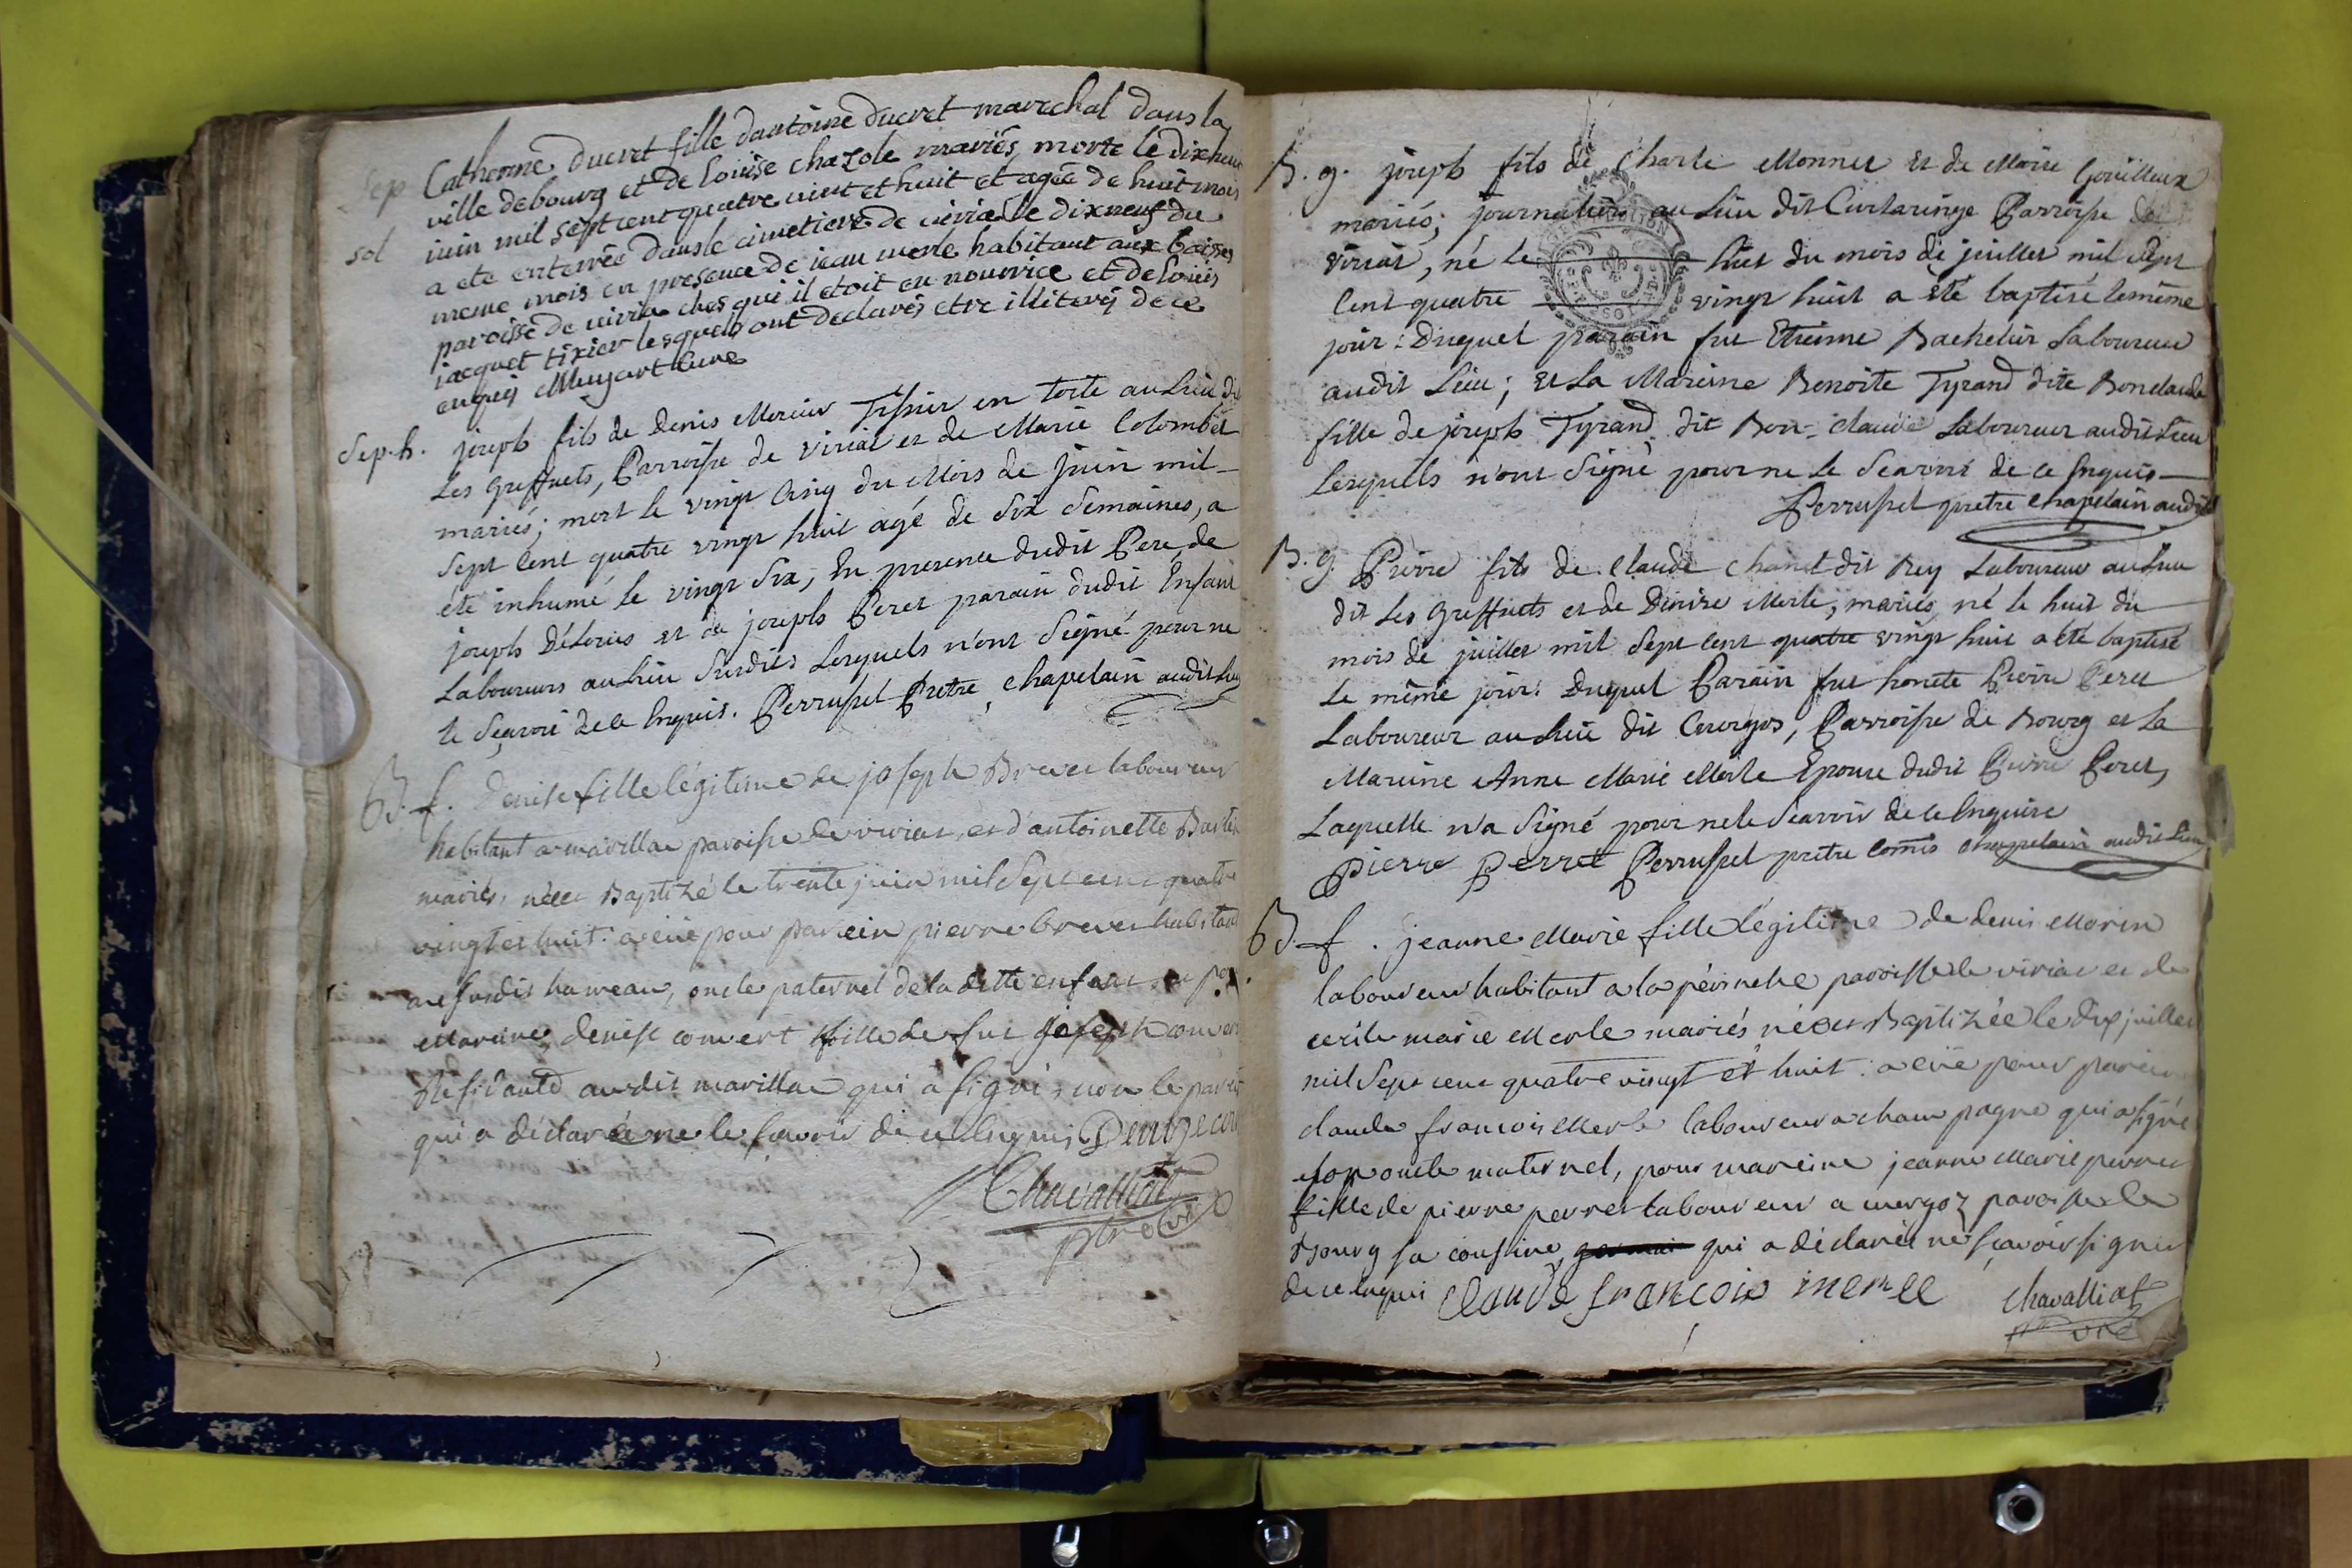 Sep Catherine ducret fille dantoine ducret marechal dans la
ville debourg et de Louise chazole mariés morte le dixheuit
sol juin mil sept cent quatre vient et huit et agée de huit mois
a ete enterrée dans le cimetiere de viria le dixneuf du
meme mois en presence de jean merle habitant aux
paroisse de viria ches qui il etoit en nourrice et de louis
jacquet tixier lesquels ont declarés etre illiterés de ce
enquis Muyart Curé
Sep. h. joseph fils de Denis Mercier Tissier en toile au Lieu dit
Les Greffets, Parroisse de viriat et de Marie Colombet
mariés; mort le vingt Cinq du Mois de Juin mil
Sept Cent quatre vingt huit agé de Six Semaines, a
été inhumé le vingt Six, En presence dudit Pere, de
joseph et de joseph Peret parain dudit Enfant
Laboureurs au Lieu Susdits Lesquels n'ont Signé pour ne
le Sçavoir de ce Enquis. Perrussel Pretre, chapelain audit Lieu
B. f. Denise fille légitime de joseph Brevet laboureur
habitant a marillac paroisse de viriat, et d'antoinette
mariés, née et Baptizé le trente juin mil Sept cent quatre
vingt et huit: a eue pour parein pierre brevet habitant
au susdit hameau, oncle paternel de la ditte enfant
Mareine, denise convert fille de feu joseph convert
Résidante audit marillac qui a signé, non le parein
qui a déclaré ne le savoir de ce Enquis
Chavalliat
ptre vic
B. g. joseph fils de Charle Monnet Et de Marie Gouilleux
mariés; journaliers au Lieu dit Curtaringe Parroisse de
viriat, né le huit du mois de juillet mil Sept
Cent quatre vingt huit a été baptisé le même
jour: Duquel parain fut Etienne Bachelier Laboureur
audit Lieu; Et La Mareine Benoite Tyrand dite Bonclaude
fille de joseph Tyrand dit Bon-claude Laboureur audit Lieu
Lesquells n'ont Signé pour ne le Scavoir de ce Enquis
Perrussel pretre chapelain audit
B. g Pierre fils de Claude Chanel dit Rey Laboureur au Lieu
dit Les Greffets et de Denise Merle, mariés, né le huit du
mois de juillet mil Sept cent quatre vingt huit a été baptisé
Le même jour: Duquel Parain fut honete Pierre Peret
Laboureur au Lieu dit Cuergos, Parroisse de Bourg et La
Mareine Anne Marie Merle Epouse dudit Pierre Peret,
Laquelle n'a Signé pour ne le Scavoir de ce Enquise
pierre perret Perrussel pretre comis chapelain audit Lieu
B. f. jeanne Marie fille légitime de denis Morin
laboureur habitant a la péronche paroisse de viriat et de
cécile marie Merle mariés née et Baptizée le dix juillet
mil Sept cent quatre vingt et huit: a eue pour parein
claude francois Merle laboureur a champagne qui a signé
son oncle maternel, pour mareine jeanne Marie perret
fille de pierre perret laboureur a cuergoz paroisse de
Bourg sa cousine, qui a déclarée ne sçavoir signer
de ce enquis Claude francois merle chavalliat